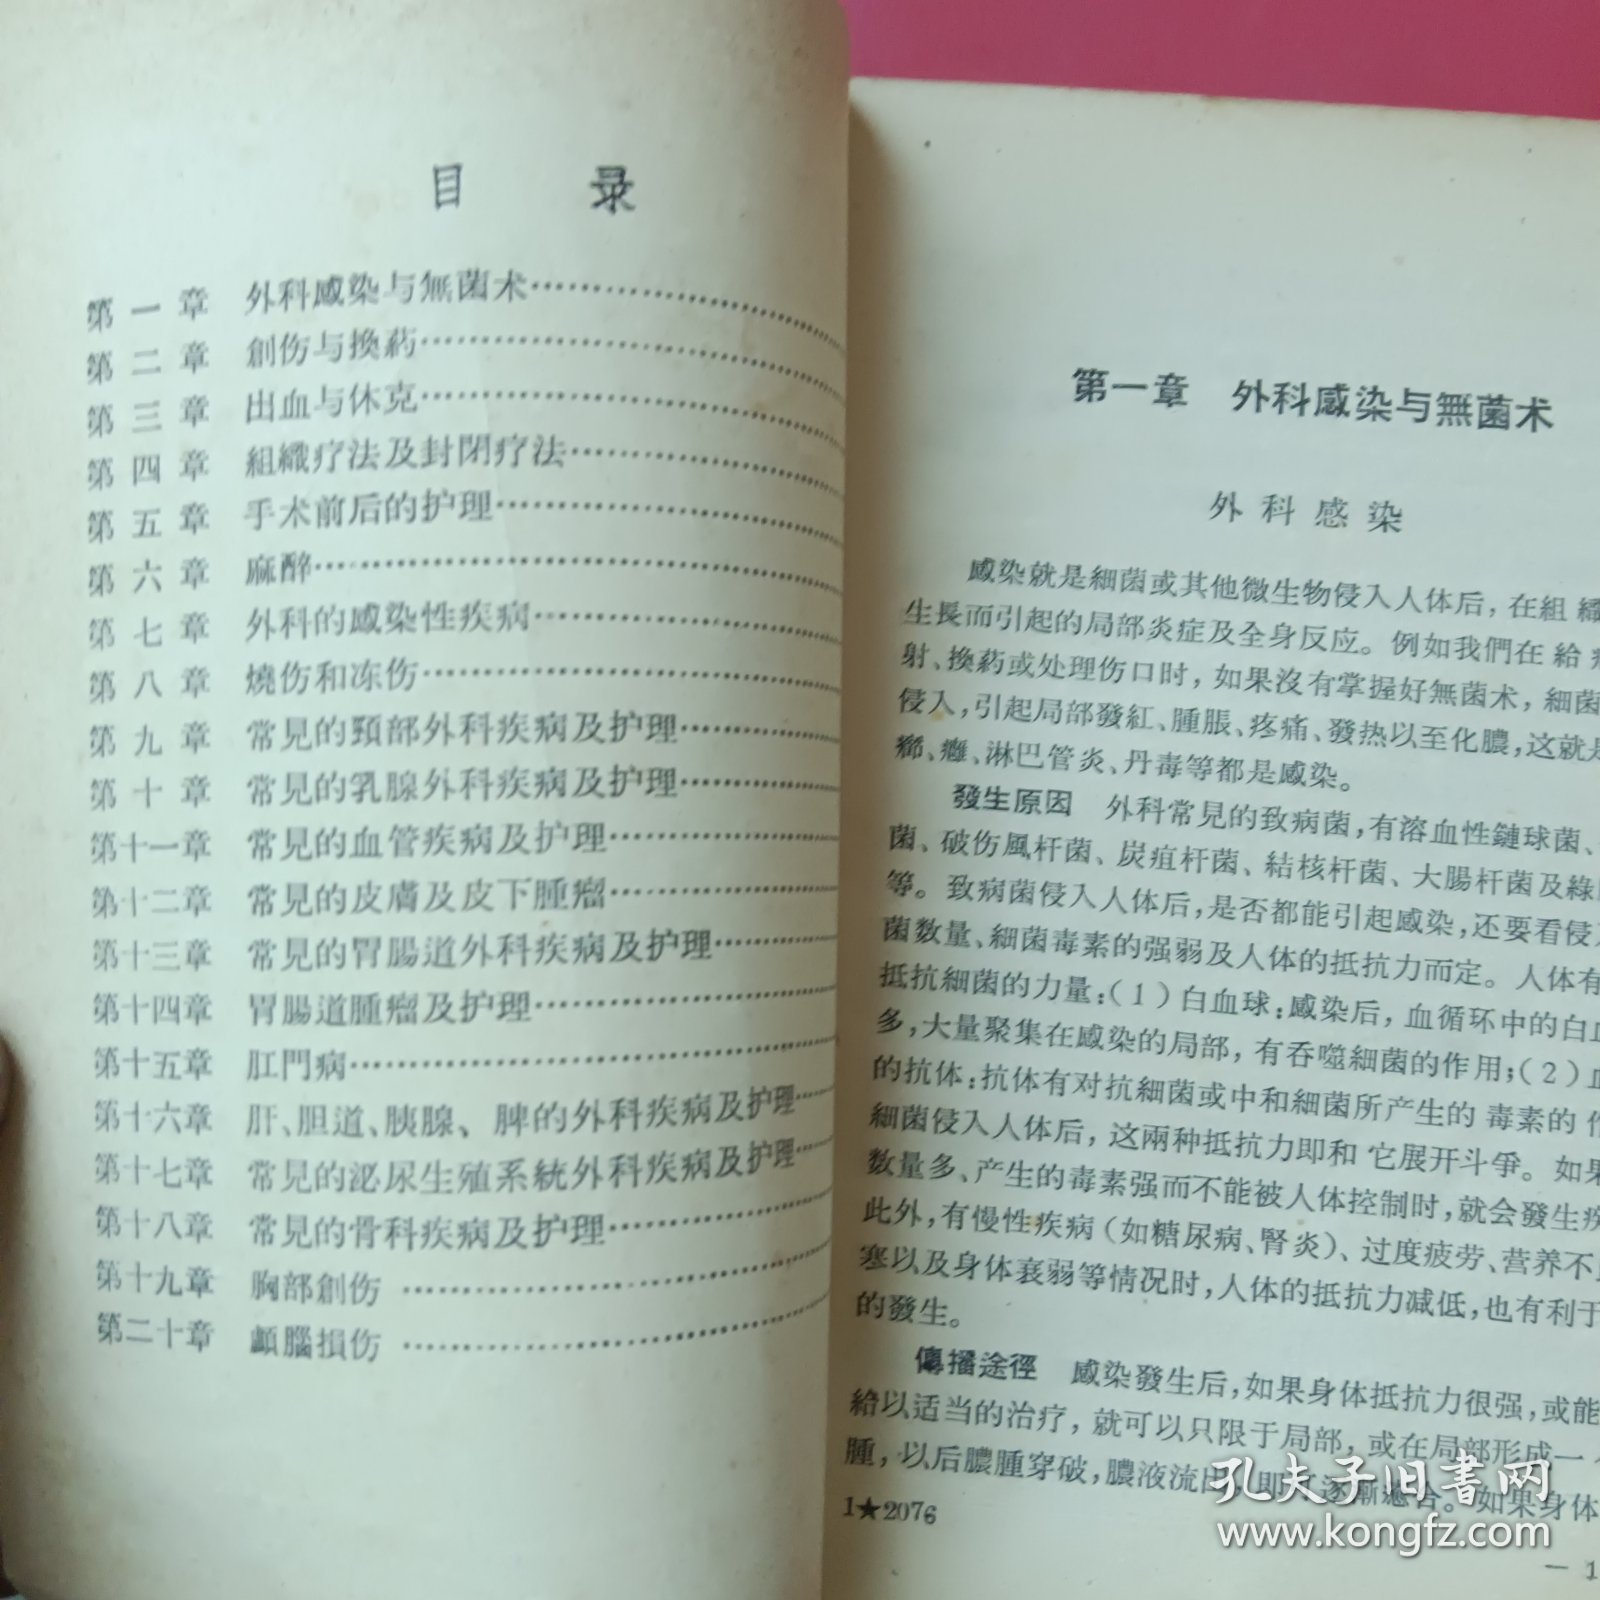 目 录
第一章 外科感染与無菌术
第二章 創伤与換葯
第三章 出血与休克
第四章 組織疗法及封閉疗法
第五章 手术前后的护理
第六章 麻醉
第七章 外科的感染性疾病
第八章 燒伤和冻伤
第九章 常見的頸部外科疾病及护理
第十章 常見的乳腺外科疾病及护理
第十一章 常見的血管疾病及护理
第十二章 常見的皮膚及皮下腫瘤
第十三章 常見的胃腸道外科疾病及护理
第十四章 胃腸道腫瘤及护理
第十五章 肛門病
第十六章 肝、胆道、胰腺、脾的外科疾病及护理
第十七章 常見的泌尿生殖系統外科疾病及护理
第十八章 常見的骨科疾病及护理
第十九章 胸部創伤
第二十章 顱腦損伤
第一章 外科感染与無菌术
外科感染
感染就是細菌或其他微生物侵入人体后，在組
生長而引起的局部炎症及全身反应。例如我們在給
射、換葯或处理伤口时，如果沒有掌握好無菌术，細菌
侵入，引起局部發紅、腫脹、疼痛、發热以至化膿，这就是
癤、癰、淋巴管炎、丹毒等都是感染。
發生原因 外科常見的致病菌，有溶血性鏈球菌、
菌、破伤風杆菌、炭疽杆菌、結核杆菌、大腸杆菌及綠
等。致病菌侵入人体后，是否都能引起感染，还要看侵
菌数量、細菌毒素的强弱及人体的抵抗力而定。人体有
抵抗細菌的力量：（1）白血球：感染后，血循环中的白
多，大量聚集在感染的局部，有吞噬細菌的作用；（2）
的抗体：抗体有对抗細菌或中和細菌所产生的毒素的
細菌侵入人体后，这兩种抵抗力即和它展开斗爭。如
数量多、产生的毒素强而不能被人体控制时，就会發生
此外，有慢性疾病（如糖尿病、腎炎）、过度疲劳、营养不
塞以及身体衰弱等情况时，人体的抵抗力减低，也有利于
的發生。
傳播途徑 感染發生后，如果身体抵抗力很强，或能
給以适当的治疗，就可以只限于局部，或在局部形成一
腫，以后膿腫穿破，膿液流出，即 逐漸癒合。如果身体
1★2076
— 1
孔夫子旧书网
www.kongfz.com